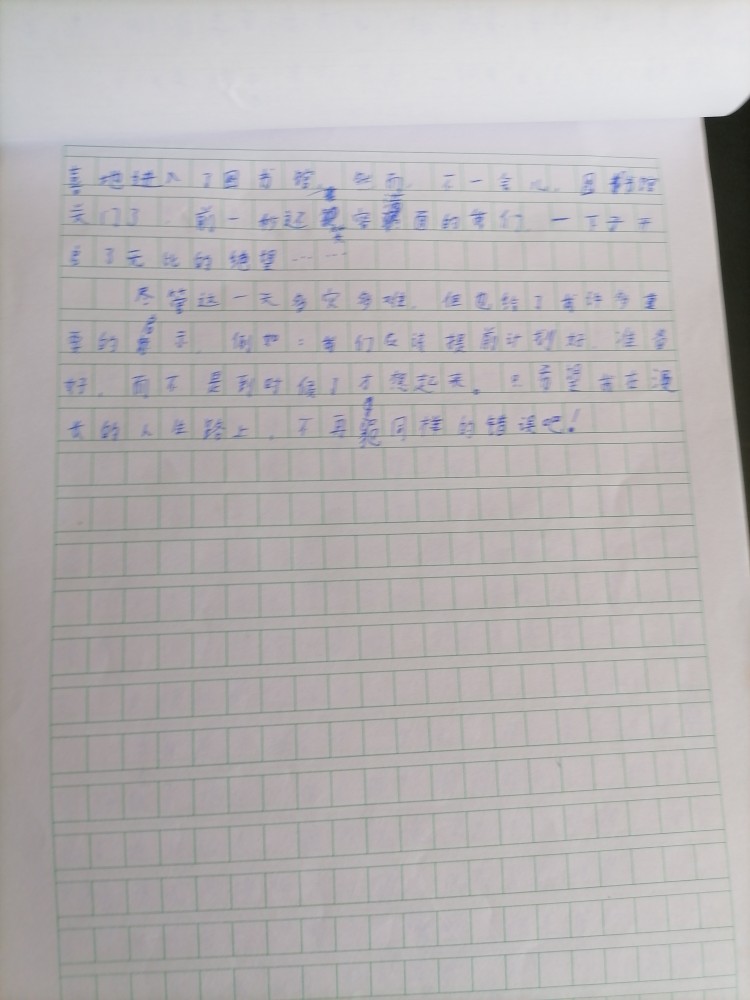 喜地进入了图书馆。然而,不一会儿,图书馆
关门了。前一秒还 面的我们,一下子
了无比的绝望……
尽管这一天多灾多难,但也给了我许多重
要的启示,例如:我们应该提前计划好,准备
好,而不是到时候了才想起来。只希望我在漫
长的人生路上,不再犯同样的错误吧!